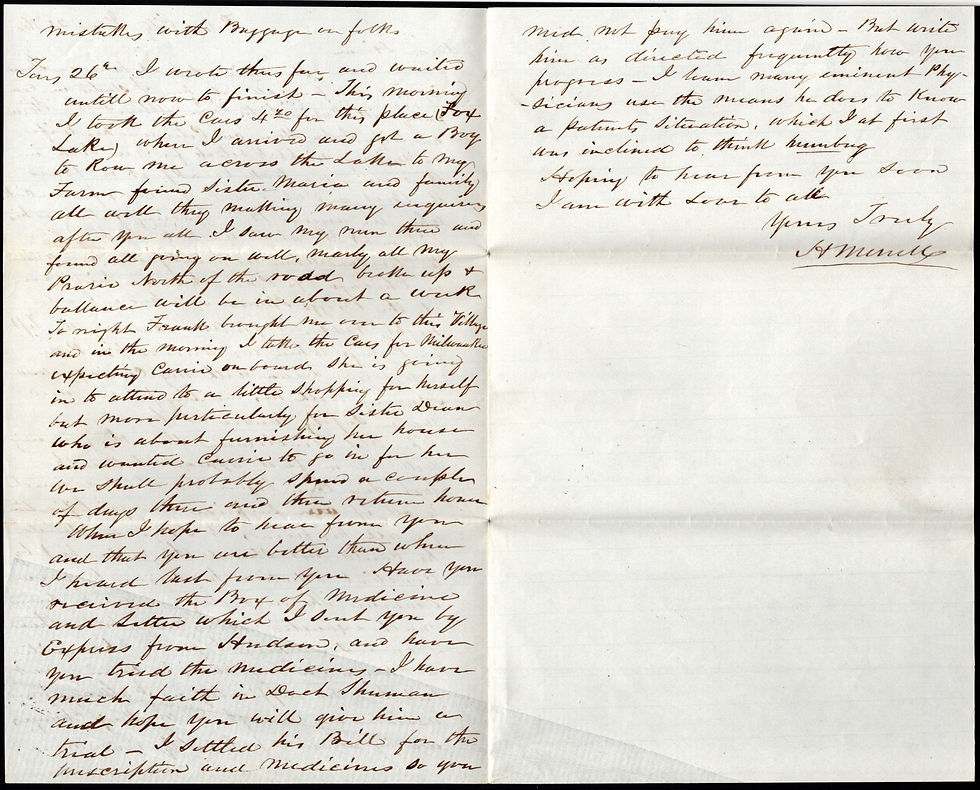 mistakes with Baggage or folks
Tues 26th I wrote thus far and waited
untill now to finish – This morning
I took the Cars 4 20 for this place (Fox
Lake) when I arrived and got a Boy
to Row me across the Lake to my
Farm found Sister Maria and family
all well they making many enquires
after you all I saw my men there and
found all going on well, nearly all my
Prarie North of the rodd broke up &
ballance will be in about a week
To night Frank brought me over to this Village
and in the morning I take the Cars for Milwaukee
expecting Carrie on board she is going
in to attend to a little shopping for herself
but more perticularly for Sister Dean
who is about furnishing her house
and wanted Carrie to go in for her
we shall probably spend a couple
of days there and then return home
When I hope to hear from you
and that you are better than when
I heard last from you Have you
received the Box of Medicine
and Letter which I sent you by
Express from Hudson, and have
you tried the medicines – I have
much faith in Doct Shuman
and hope you will give him a
trial – I settled his Bill for the
prescription and medicines so you
need not pay him again – But write
him as directed frequently how you
progress – I learn many eminent Phy-
-sicians use the means he does to Know
a patients situation, which I at first
was inclined to think humbug
Hoping to hear from you soon
I am with Love to all
Yours Truly
H Merrell